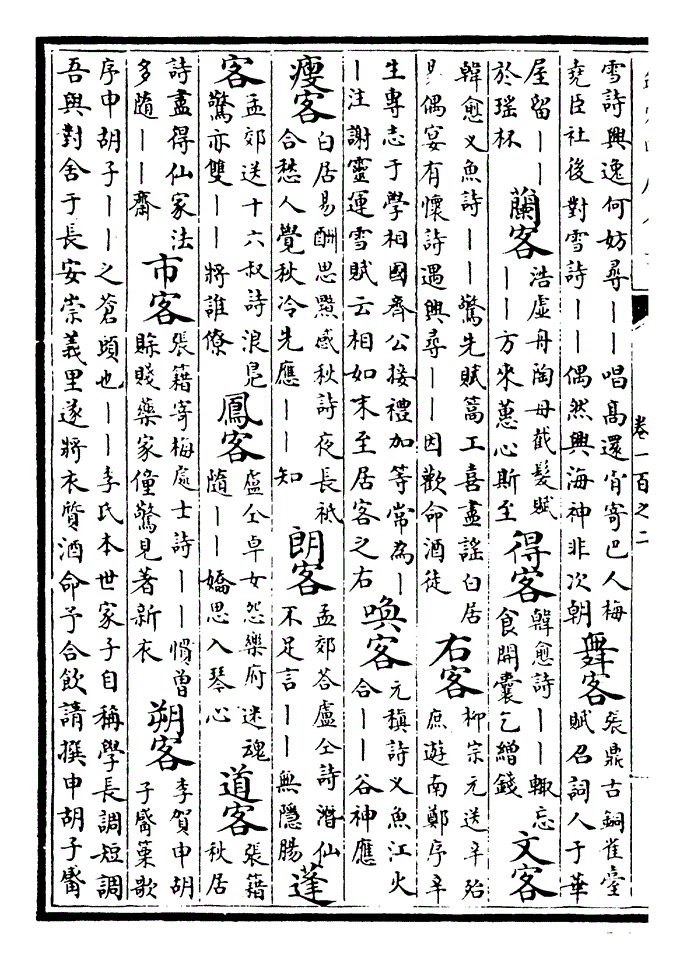 卷一百之二
雪詩興逸何妨尋——唱高還肯寄巴人梅
堯臣社後對雪詩——偶然興海神非次朝
舞客
張鼎古銅雀臺
賦召詞人于華
屋留——
於瑶杯
蘭客
浩虛舟陶母截髮賦
——方來蕙心斯至
得客
韓愈詩——輒忘
食開囊乞繒錢
文客
韓愈乂魚詩——驚先賦篙工喜盡謡白居
易偶宴有懷詩遇興尋——因歡命酒徒
右客
柳宗元送辛殆
庶遊南鄭序辛
生專志于學相國齊公接禮加等常為—
—注謝靈運雪賦云相如末至居客之右
喚客
元稹詩乂魚江火
合——谷神應
瘦客
白居易酬思黯感秋詩夜長祗
合愁人覺秋冷先應——知
朗客
孟郊荅盧仝詩潛仙
不足言——無隱腸
蓬
客
孟郊送十六叔詩浪鳧
驚亦雙——將誰僚
鳳客
盧仝卓女怨樂府迷魂
隨——嬌思入琴心
道客
張籍
秋居
詩盡得仙家法
多隨——齋
市客
張籍寄梅處士詩——慣曾
賖賤藥家僮驚見著新衣
朔客
李賀申胡
子觱篥歌
序申胡子——之蒼頭也——李氏本世家子自稱學長調短調
吾與對舍于長安崇義里遂將衣質酒命予合飲請撰申胡子觱